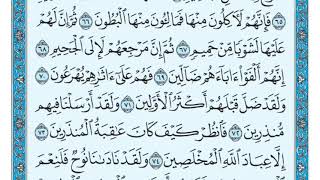 ٦٥ فَإِنَّهُمْ لَآكِلُونَ مِنْهَا فَمَالِـُٔونَ مِنْهَا ٱلْبُطُونَ ٦٦ ثُمَّ إِنَّ لَهُمْ
عَلَيْهَا لَشَوْبًا مِّنْ حَمِيمٍ ٦٧ ثُمَّ إِنَّ مَرْجِعَهُمْ لَإِلَى ٱلْجَحِيمِ ٦٨
إِنَّهُمْ أَلْفَوْا۟ ءَابَآءَهُمْ ضَآلِّينَ ٦٩ فَهُمْ عَلَىٰٓ ءَاثَـٰرِهِمْ يُهْرَعُونَ ٧٠
وَلَقَدْ ضَلَّ قَبْلَهُمْ أَكْثَرُ ٱلْأَوَّلِينَ ٧١ وَلَقَدْ أَرْسَلْنَا فِيهِم
مُّنذِرِينَ ٧٢ فَٱنظُرْ كَيْفَ كَانَ عَـٰقِبَةُ ٱلْمُنذَرِينَ ٧٣
إِلَّا عِبَادَ ٱللَّهِ ٱلْمُخْلَصِينَ ٧٤ وَلَقَدْ نَادَىٰنَا نُوحٌ فَلَنِعْمَ